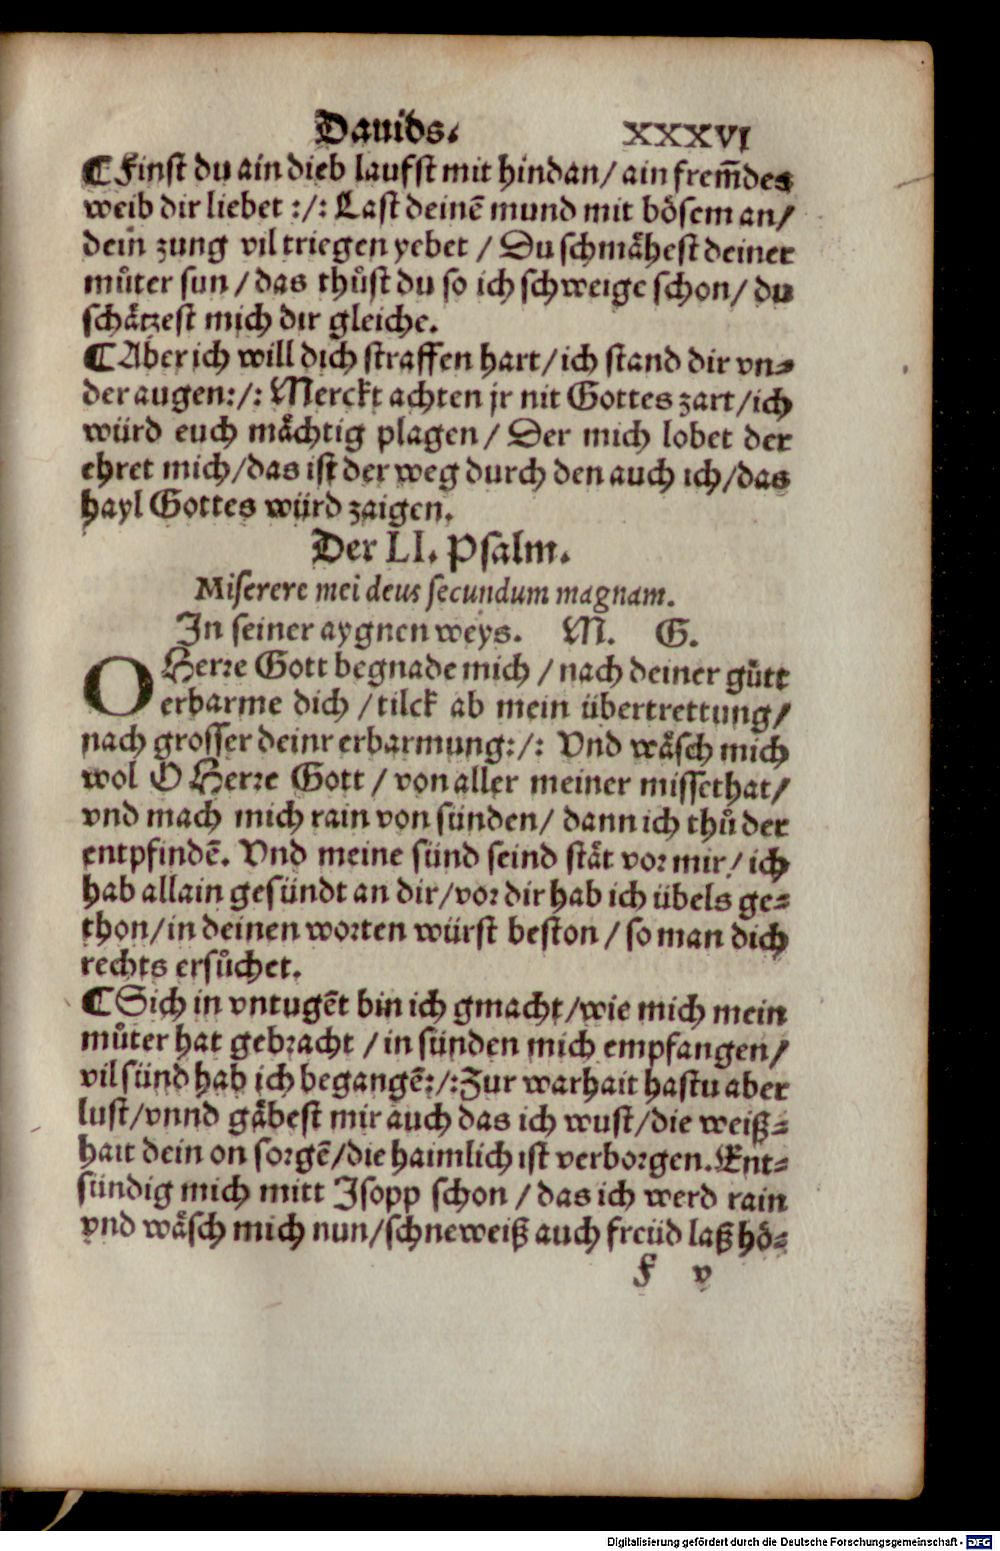 Dauids. XXXVI
⸿ Finst du ain dieb laufst mit hindan / ain frem̃des
weib dir liebet :/: Last deinẽ mund mit boͤsem an /
dein zung vil triegen yebet / Du schmaͤhest deiner
muͦter sun / das thuͦst du so ich schweige schon / du
schaͤtzest mich dir gleiche.
⸿ Aber ich will dich straffen hart / ich stand dir vn⸗
der augen :/: Merckt achten jr nit Gottes zart / ich
würd euch maͤchtig plagen / Der mich lobet der
ehret mich / das ist der weg durch den auch ich / das
hayl Gottes würd zaigen.
Der LI. Psalm.
Miserere mei deus secundum magnam.
In seiner aygnen weys. M. G.
O Herre Gott begnade mich / nach deiner guͤtt
erbarme dich / tilck ab mein übertrettung /
nach grosser deinr erbarmung :/: Vnd waͤsch mich
wol O Herre Gott / von aller meiner missethat /
vnd mach mich rain von sünden / dann ich thuͦ der
entpfindẽ. Vnd meine sünd seind staͤt vor mir / ich
hab allain gesündt an dir / vor dir hab ich übels ge⸗
thon / in deinen worten würst beston / so man dich
rechts ersuͦchet.
⸿ Sich in vntugẽt bin ich gmacht / wie mich mein
muͦter hat gebracht / in sünden mich empfangen /
vil sünd hab ich begangẽ :/: Zur warhait hastu aber
lust / vnnd gaͤbest mir auch das ich wust / die weiß⸗
hait dein on sorgẽ / die haimlich ist verborgen. Ent⸗
sündig mich mitt Isopp schon / das ich werd rain
vnd waͤsch mich nun / schneweiß auch freüd laß hoͤ⸗
f v
Digitalisierung gefördert durch die Deutsche Forschungsgemeinschaft - DFG